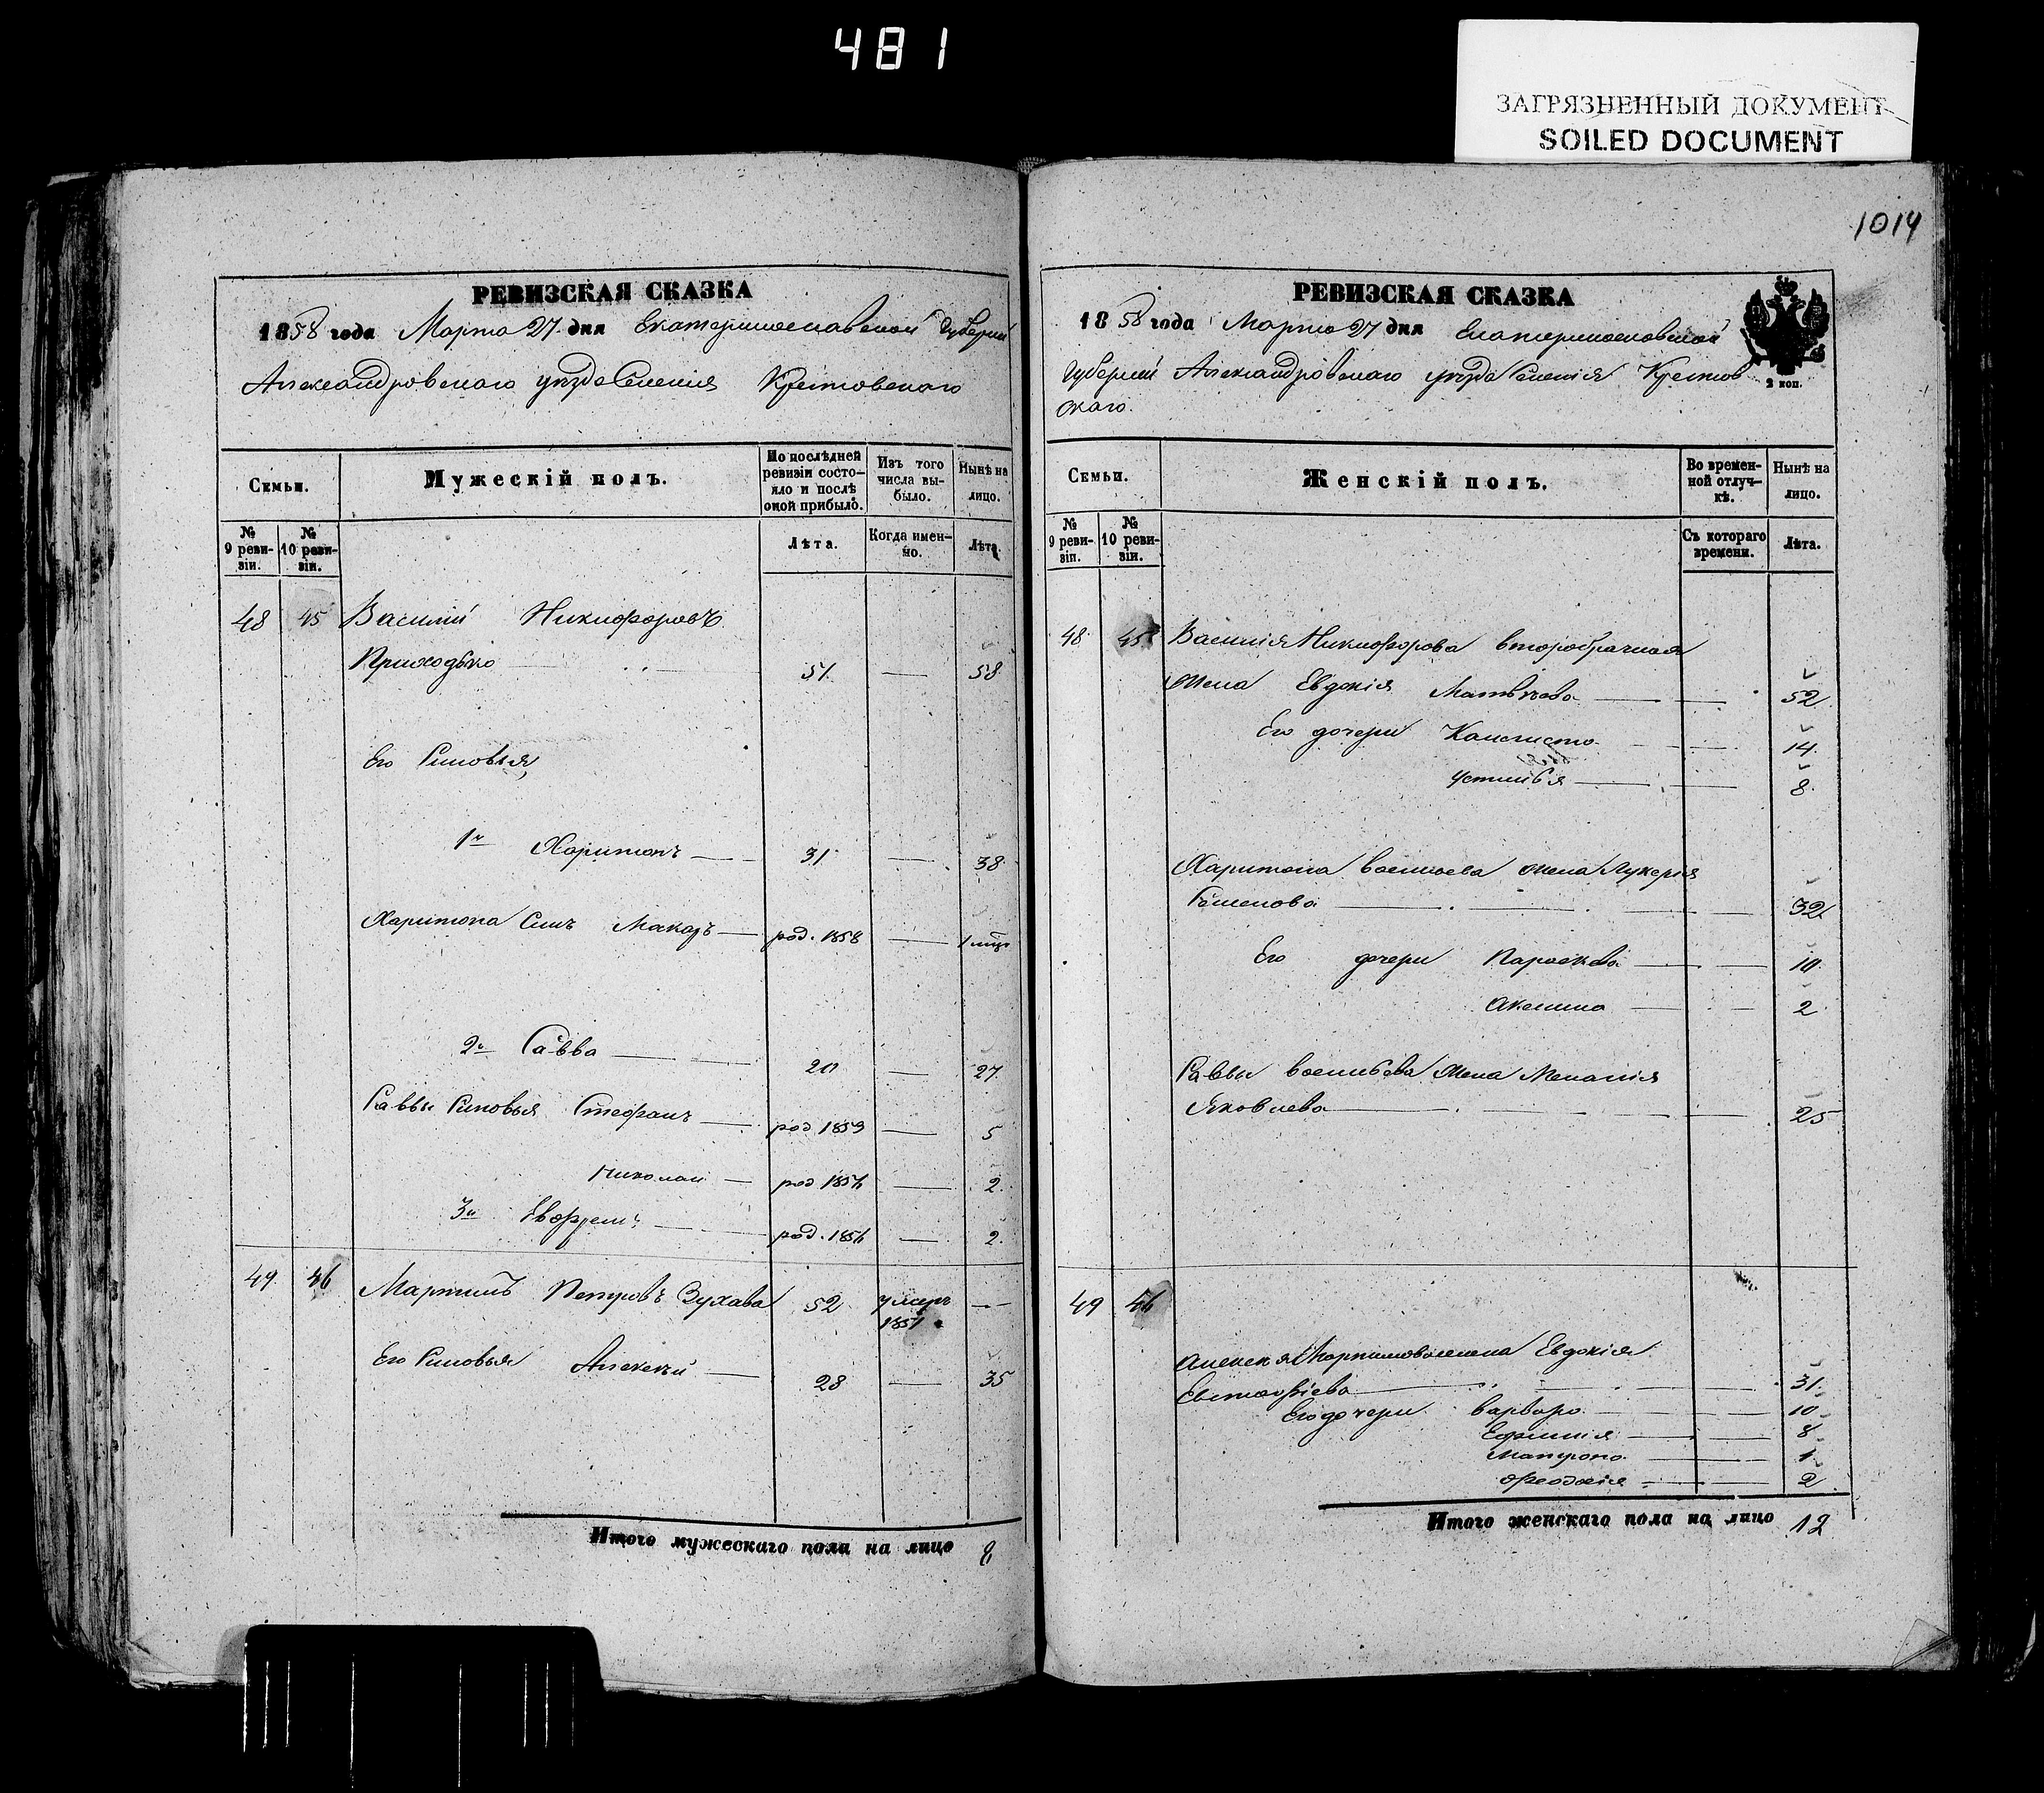 481
ЗАГРЯЗНЕННЫЙ ДОКУМЕНТ
SOILED DOCUMENT
РЕВИЗСКАЯ СКАЗКА
1858 года Марта 27 дня Екатеринославской Губернии
Александровскаго уезда Селения Крестовскаго
Семьи.
№ 9 ревизіи.
№ 10 ревизіи.
Мужескій полъ.
По послѣдней ревизіи состояло и послѣ оной прибыло.
Изъ того числа выбыло.
Нынѣ на лицо.
Лѣта.
Когда именно.
Лѣта.
48 45 Василий Никифоровъ
Приходько 51 58
Его Сыновья,
1й Харитонъ 31 38
Харитона Сынъ Макаръ род. 1858 1 мѣц
2й Савва 20 27
Саввы Сыновья Стефанъ род 1853 5
Николай род 1856 2
3й род. 1856 2
49 46 Мартинъ Петровъ Зухава 52 умеръ 1851
Его Сыновья Алексей 28 35
Итого мужескаго пола на лицо 9
1014
РЕВИЗСКАЯ СКАЗКА
1858 года Марта 27 дня Екатеринославской
Губернии Александровскаго уезда Селения Крестов
скаго.
2 коп.
Семьи.
№ 9 ревизіи.
№ 10 ревизіи.
Женскій полъ.
Во временной отлучкѣ.
Нынѣ на лицо.
Съ котораго времени.
Лѣта.
48 45 Василія Никифорова второбрачная
жена Евдокія Матвѣева 52
Его дочери 14
Устинья 8
Харитона Васильева жена Лукерія
Семенова 32
Его дочери Параскева 10
Акелина 2
Саввы Васильева жена Меланія
Яковлева 25
49 46
Алексея Мартинова жена Евдокія
Евстафіева 31
Его дочери Варвара 10
Ефимія 8
Матрона 1
Феодосія 2
Итого женскаго пола на лицо 12